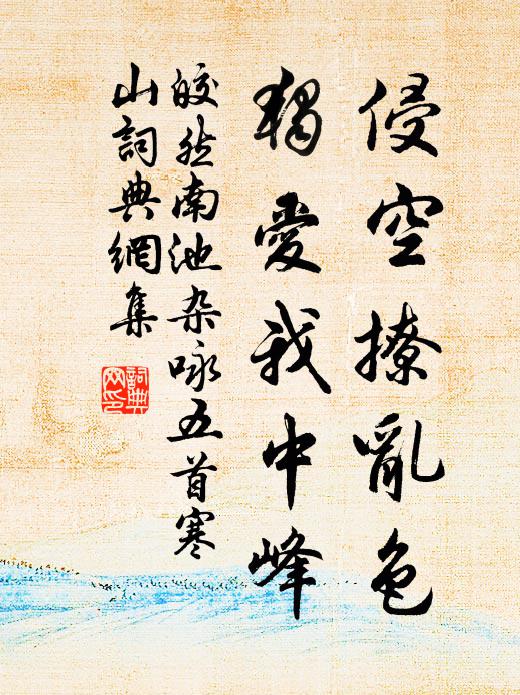 侵空撩亂色
獨愛我中峰
皎然南池杂咏五首寒
山詞典網集
詞典
网印